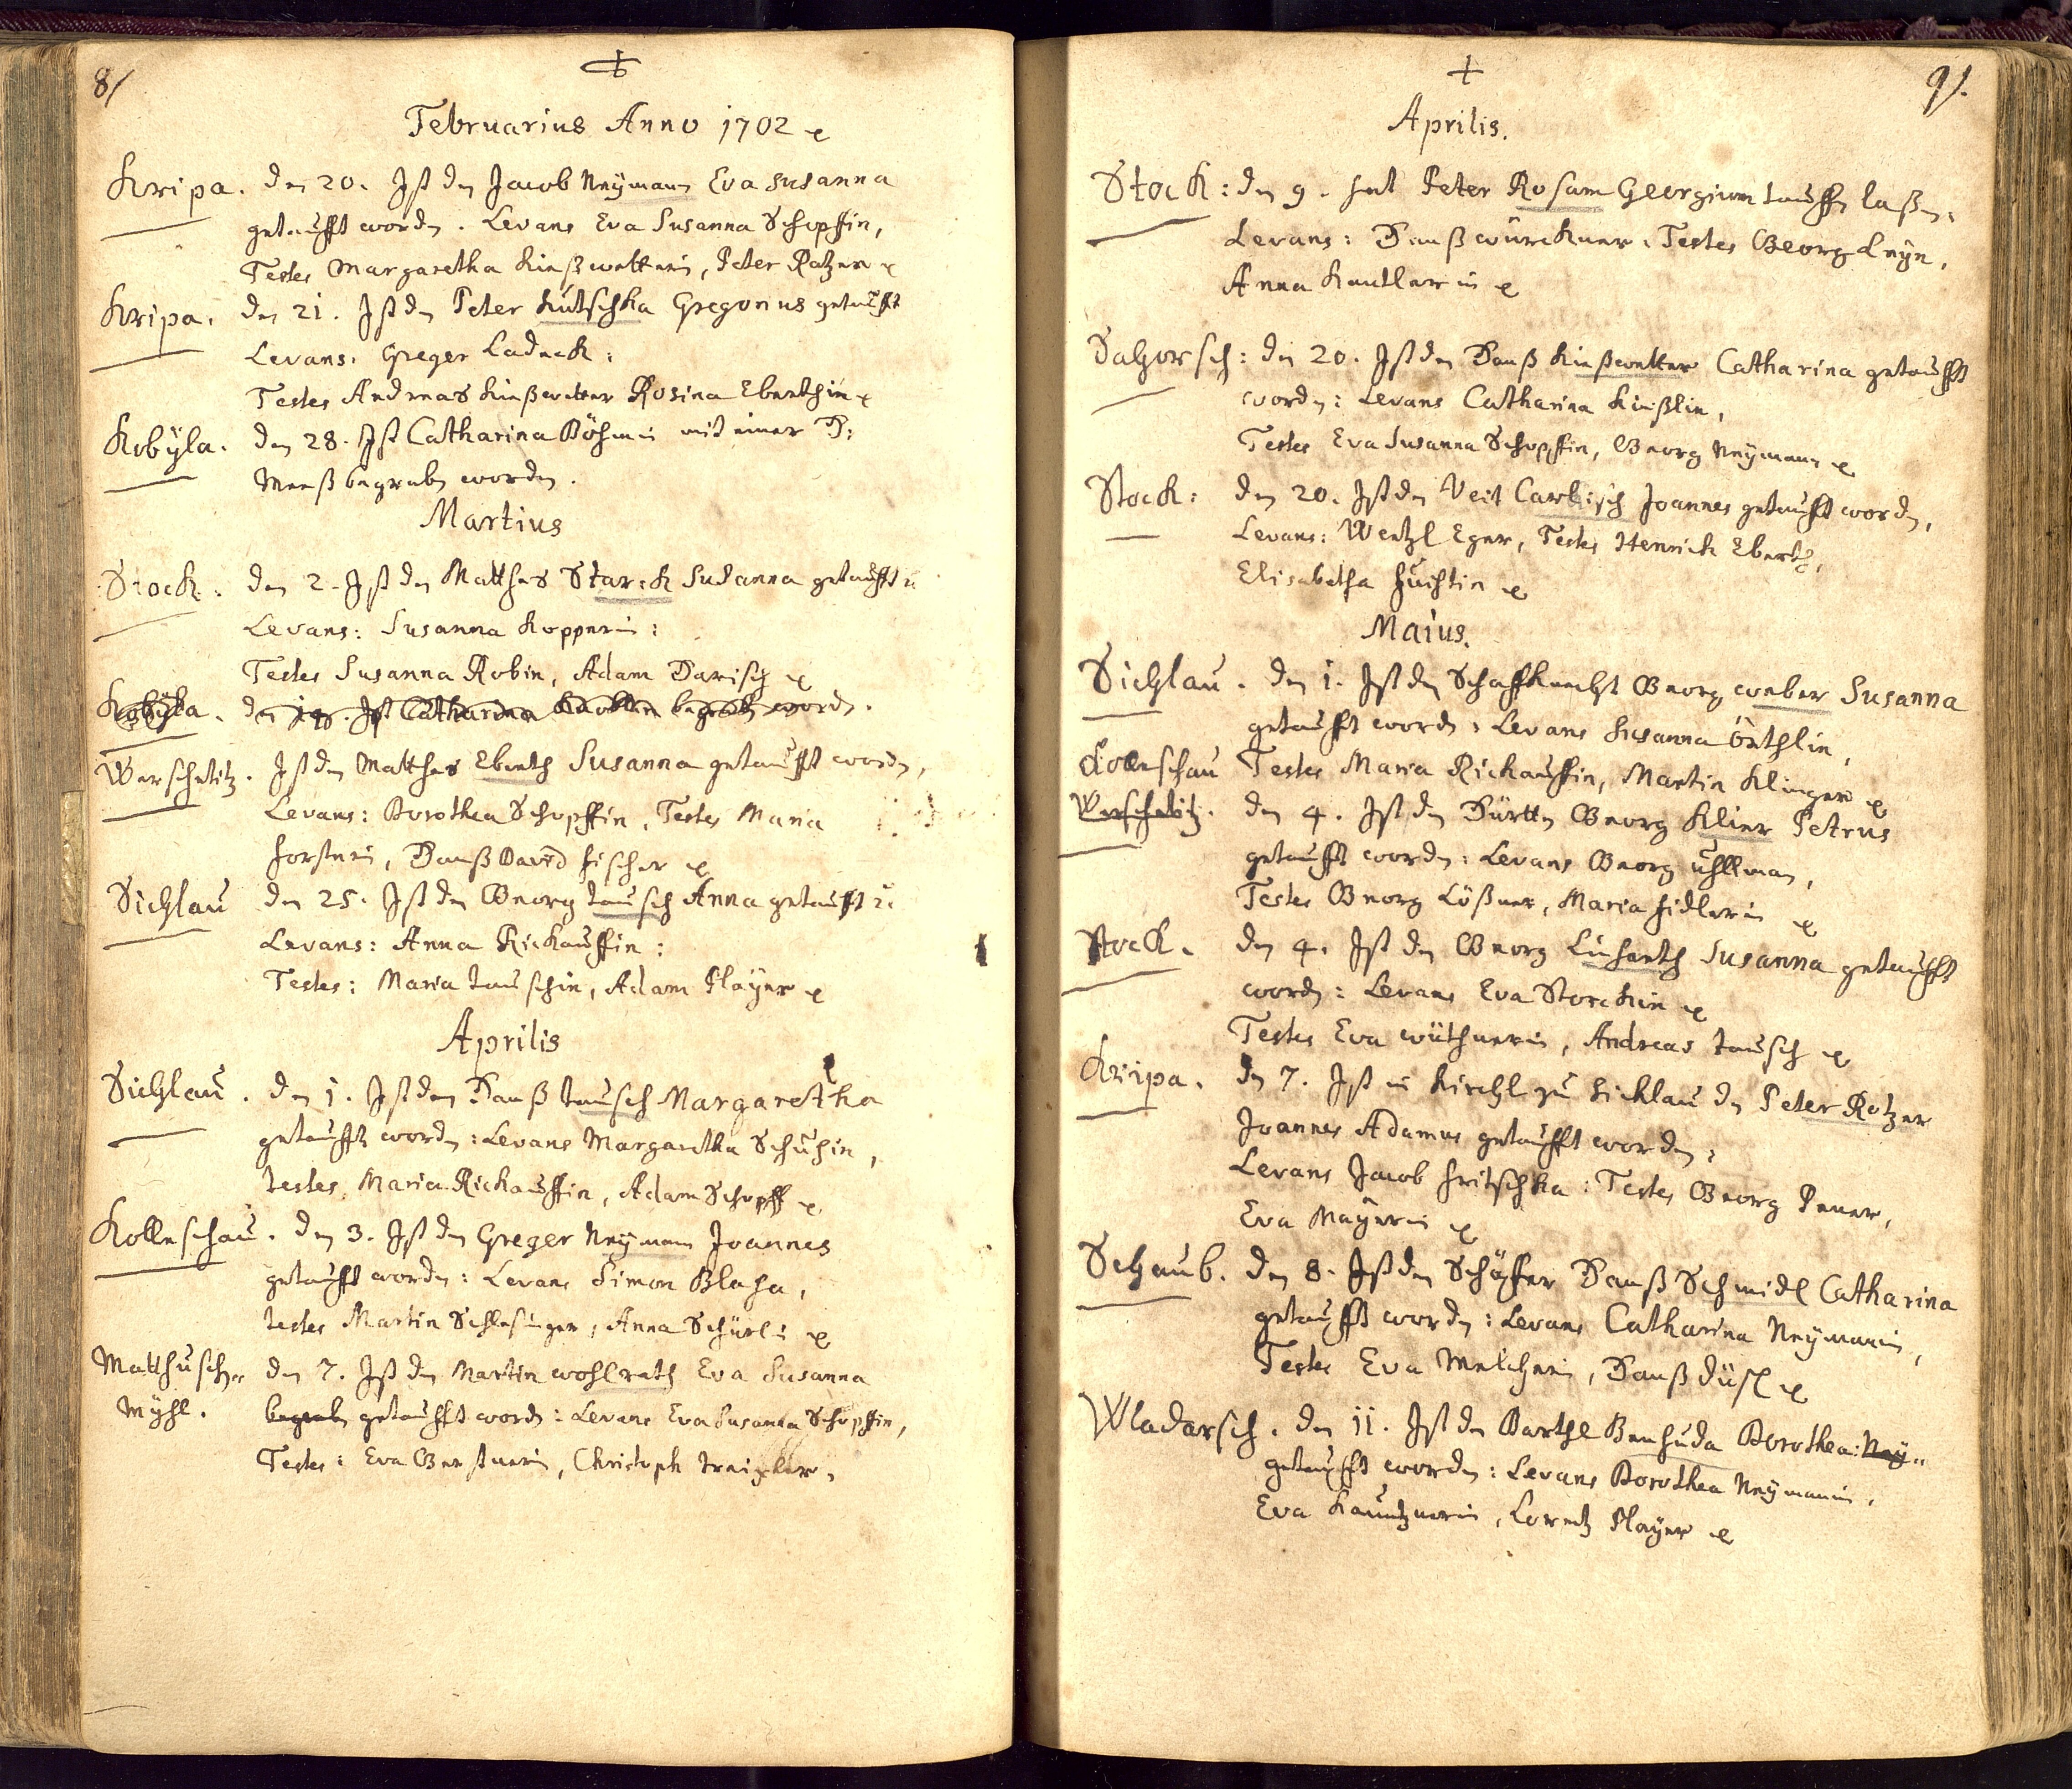 8/
Februarius Anno 1702
Kripa. den 20. Ist den Jacob Neÿmann Eva Susanna
getaufft worden. Levans Eva Susanna Schopffin,
Testes Margaretha Kießwetterin, Peter Rotzer
Kripa. den 21. Ist den Peter Kutschka Gregorius getaufft
Levans. Greger Ladeck:
Testes Andreas Kießwetter Rosina Eberthin
Kobÿla. den 28. Ist Catharina Böhmin mit einer H:
Meeß begraben worden.
Martius
Stock. den 2. Ist den Matthes Starck Susanna getaufft
Levans: Susanna Kopperin:
Testes Susanna Robin, Adam Parisch
Kobÿla. den 19. Ist Catharina begraben worden.
Werscheditz. Ist den Matthes Eberth Susanna getaufft worden,
Levans: Dorothea Schopffin, Testes Maria
Forsterin, Hanß David Fischer
Sichlau den 25. Ist den Georg Tausch Anna getaufft
Levans: Anna Rickauffin:
Testes: Maria Tauschin, Adam Plaÿer
Aprilis
Sichlau. den 1. Ist den Hanß Tausch Margaretha
getaufft worden: Levans Margaretha Schuhin,
testes Maria Rickauffin, Adam Schopff
Kolleschau. den 3. Ist den Greger Neÿmann Joannes
getaufft worden: Levans Simon Blaha,
testes Martin Schlesinger, Anna Schürlin
Matthusch- den 7. Ist den Martin Wohlrath Eva Susanna
Mÿhl. begraben getaufft worden: Levans Eva Susanna Schopffin,
Testes: Eva Gerstnerin, Christoph
9/.
Aprilis.
Stock: den 9. hat Peter Rosam Georgium tauffen laßen.
Levans: Hanß Würckner. Testes Georg Leÿn,
Anna Kandlerin
Sahorsch: den 20. Ist den Hanß Kießwetter Catharina getaufft
worden: Levans Catharina Kießlin,
Testes Eva Susanna Schopffin, Georg Neÿmann
Stock: den 20. Ist den Veit Carlisch Joannes getaufft worden,
Levans: Wentzl Eger, Testes Henrich Ebert,
Elisabetha Fuchtin
Maius.
Sichlau. den 1. Ist den Schaffknecht Georg Weber Susanna
getaufft worden: Levans Susanna Örthlin,
Kolleschau Testes Maria Rickauffin, Martin Klinger
Werscheditz. den 4. Ist den Hürtten Georg Klier Petrus
getaufft worden: Levans Georg Uhllman,
Testes Georg Lößner, Maria Fidlerin
Stock. den 4. Ist den Georg Linharth Susanna getaufft
worden: Levans Eva Storckin
Testes Eva Wüthnerin, Andreas Tausch
Kripa. den 7. Ist in Kirchl zu Sichlau den Peter Rotzer
Joannes Adamus getaufft worden:
Levans Jacob Fritschka: Testes Georg Peuer,
Eva Maÿerin
Schaub. den 8. Ist den Schäffer Hanß Schmidl Catharina
getaufft worden: Levans Catharina Neÿmanin,
Testes Eva Melcherin, Hanß Düsl
Wladarsch. den 11. Ist den Barthl Benhuda Dorothea: Neÿ-
getaufft worden: Levans Dorothea Neÿmanin,
Eva Kauntznerin, Lorentz Plaÿer